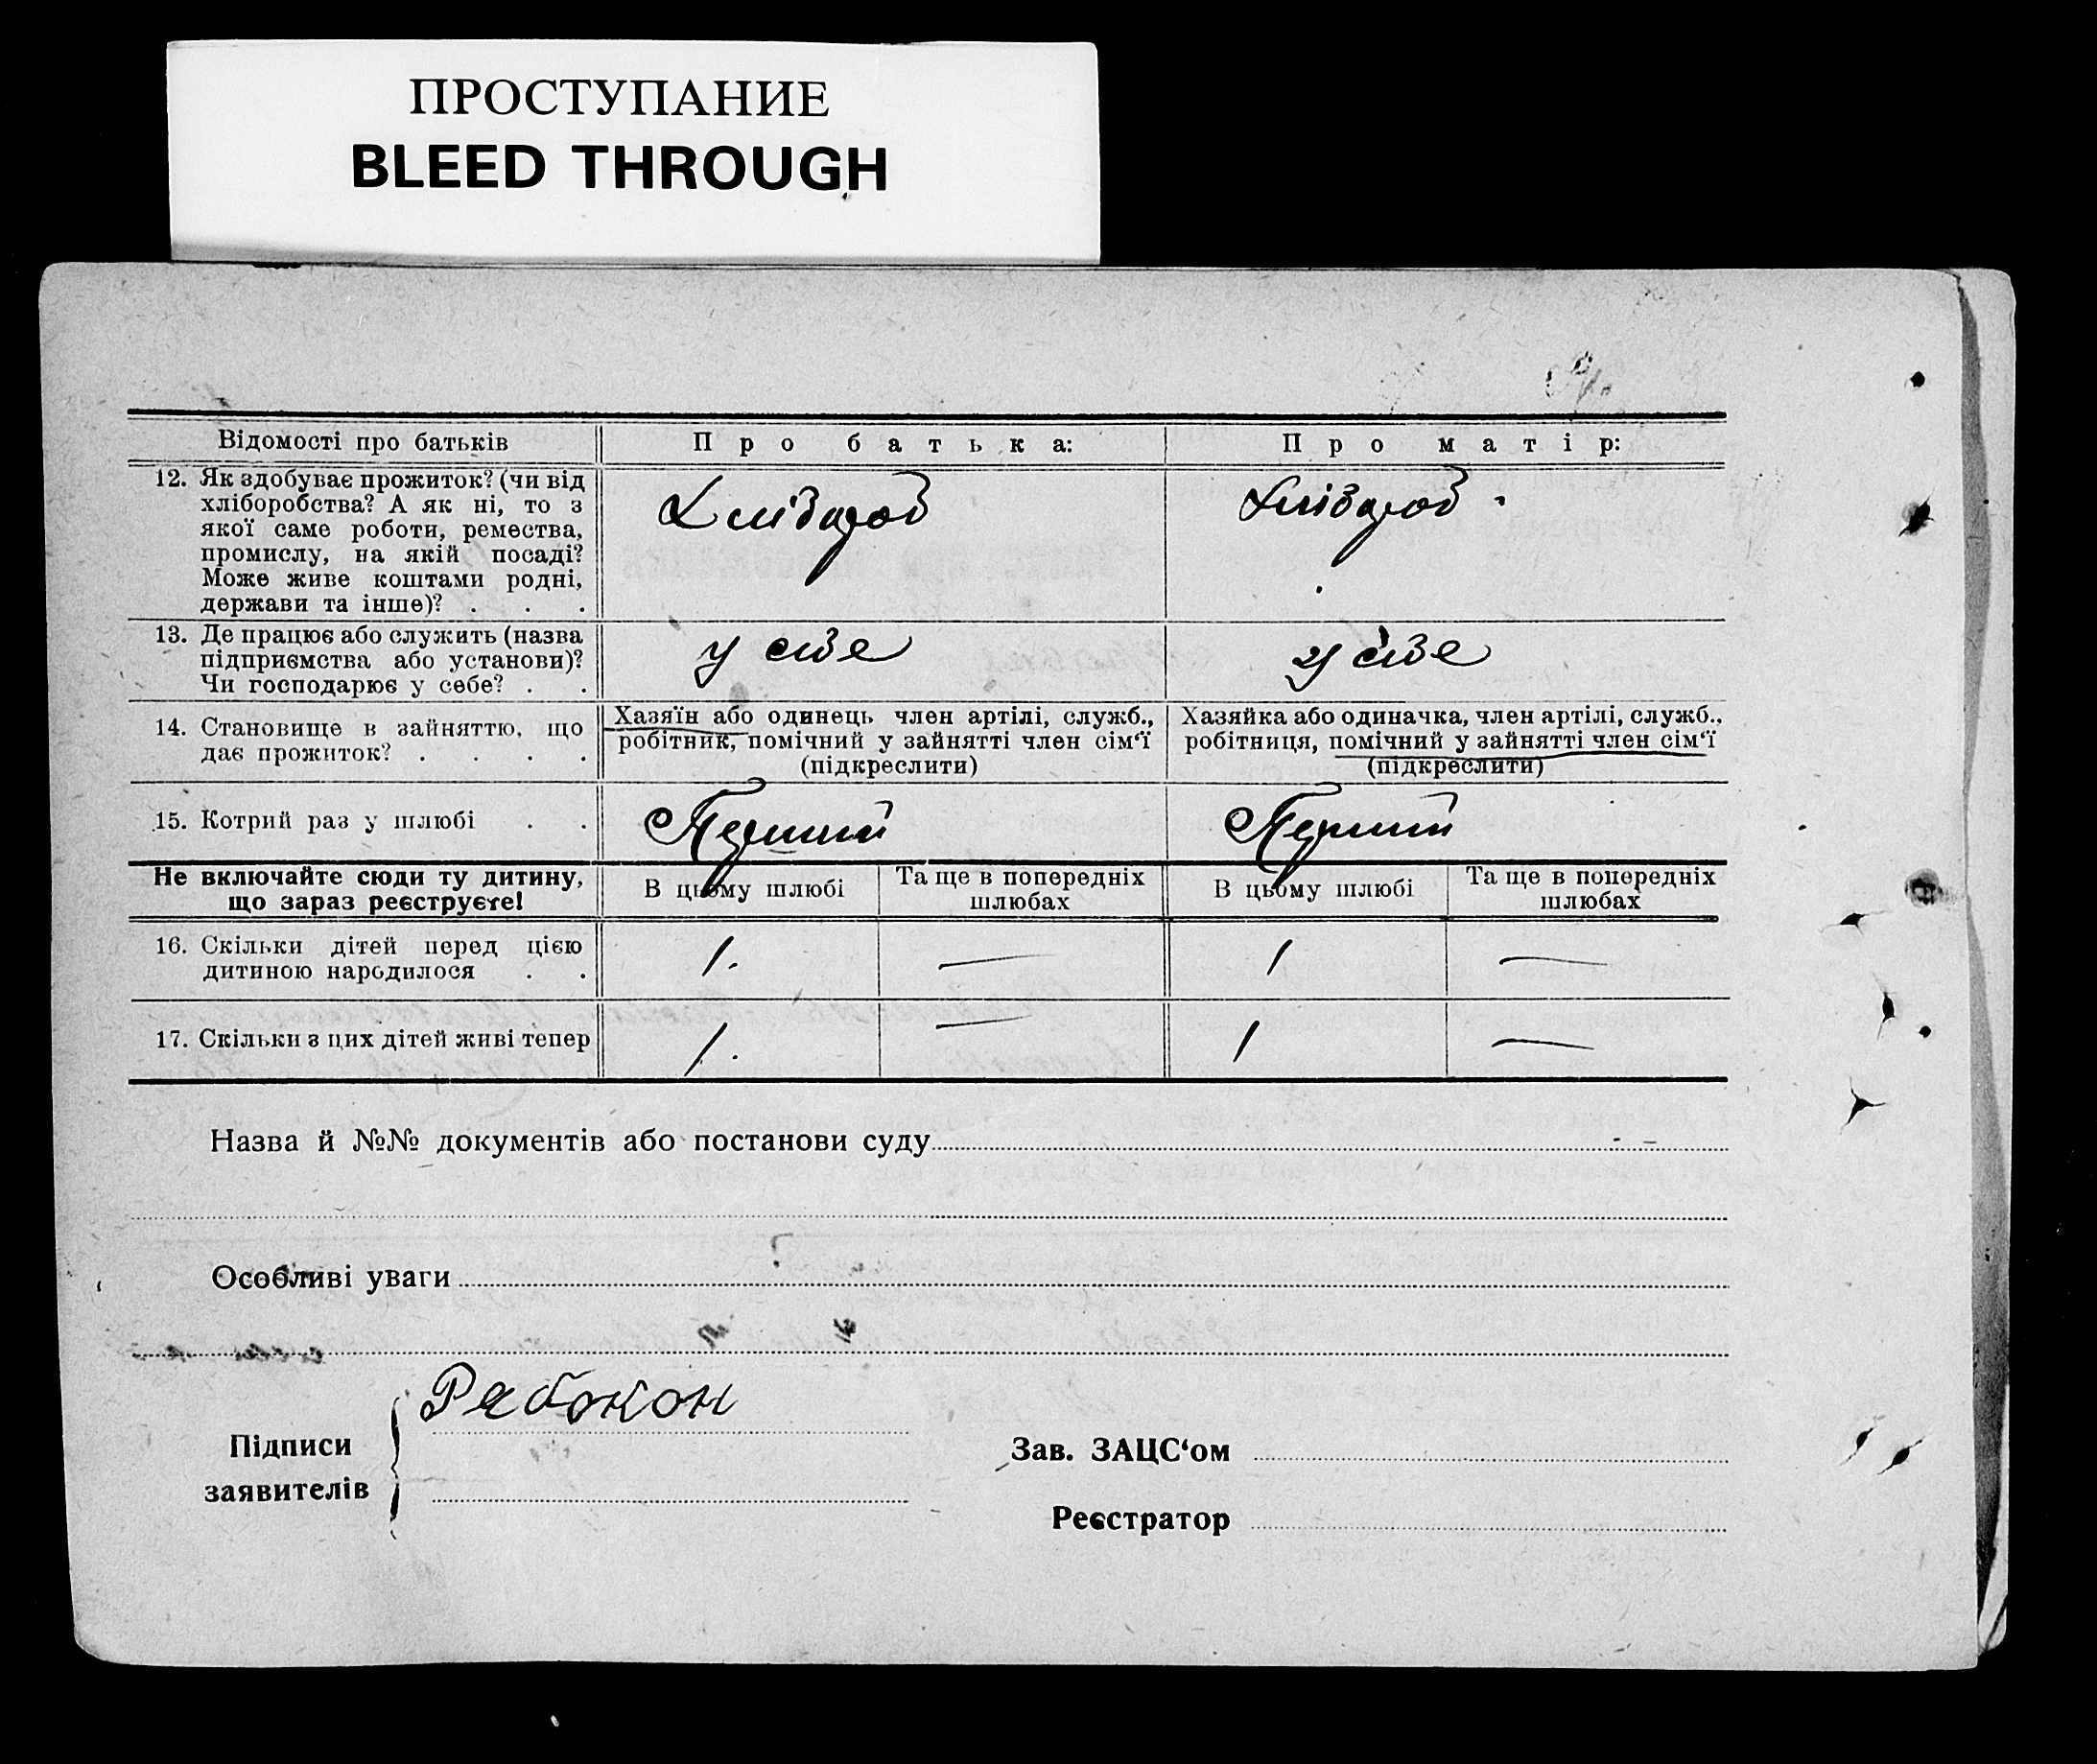 ПРОСТУПАНИЕ
BLEED THROUGH
Відомості про батьків
Про батька:
Про матір:
12. Як здобуває прожиток? (чи від
хліборобства? А як ні, то з
якої саме роботи, ремества,
промислу, на якій посаді?
Може живе коштами родні,
держави та інше)? . . .
Хлібороб
Хлібороб
13. Де працює або служить (назва
підприємства або установи)?
Чи господарює у себе? . .
у себе
у себе
14. Становище в зайняттю, що
дає прожиток? . . . .
Хазяїн або одинець член артілі, служб.,
робітник, помічний у зайнятті член сім‘ї
(підкреслити)
Хазяйка або одиначка, член артілі, служб.,
робітниця, помічний у зайнятті член сім‘ї
(підкреслити)
15. Котрий раз у шлюбі . .
Перший
Перший
Не включайте сюди ту дитину,
що зараз реєструєте!
В цьому шлюбі
Та ще в попередніх
шлюбах
В цьому шлюбі
Та ще в попередніх
шлюбах
16. Скільки дітей перед цією
дитиною народилося . .
1. — 1 —
17. Скільки з цих дітей живі тепер
1. — 1 —
Назва й №№ документів або постанови суду
Особливі уваги
Рябокон
Підписи
заявителів
Зав. ЗАЦС‘ом
Реєстратор